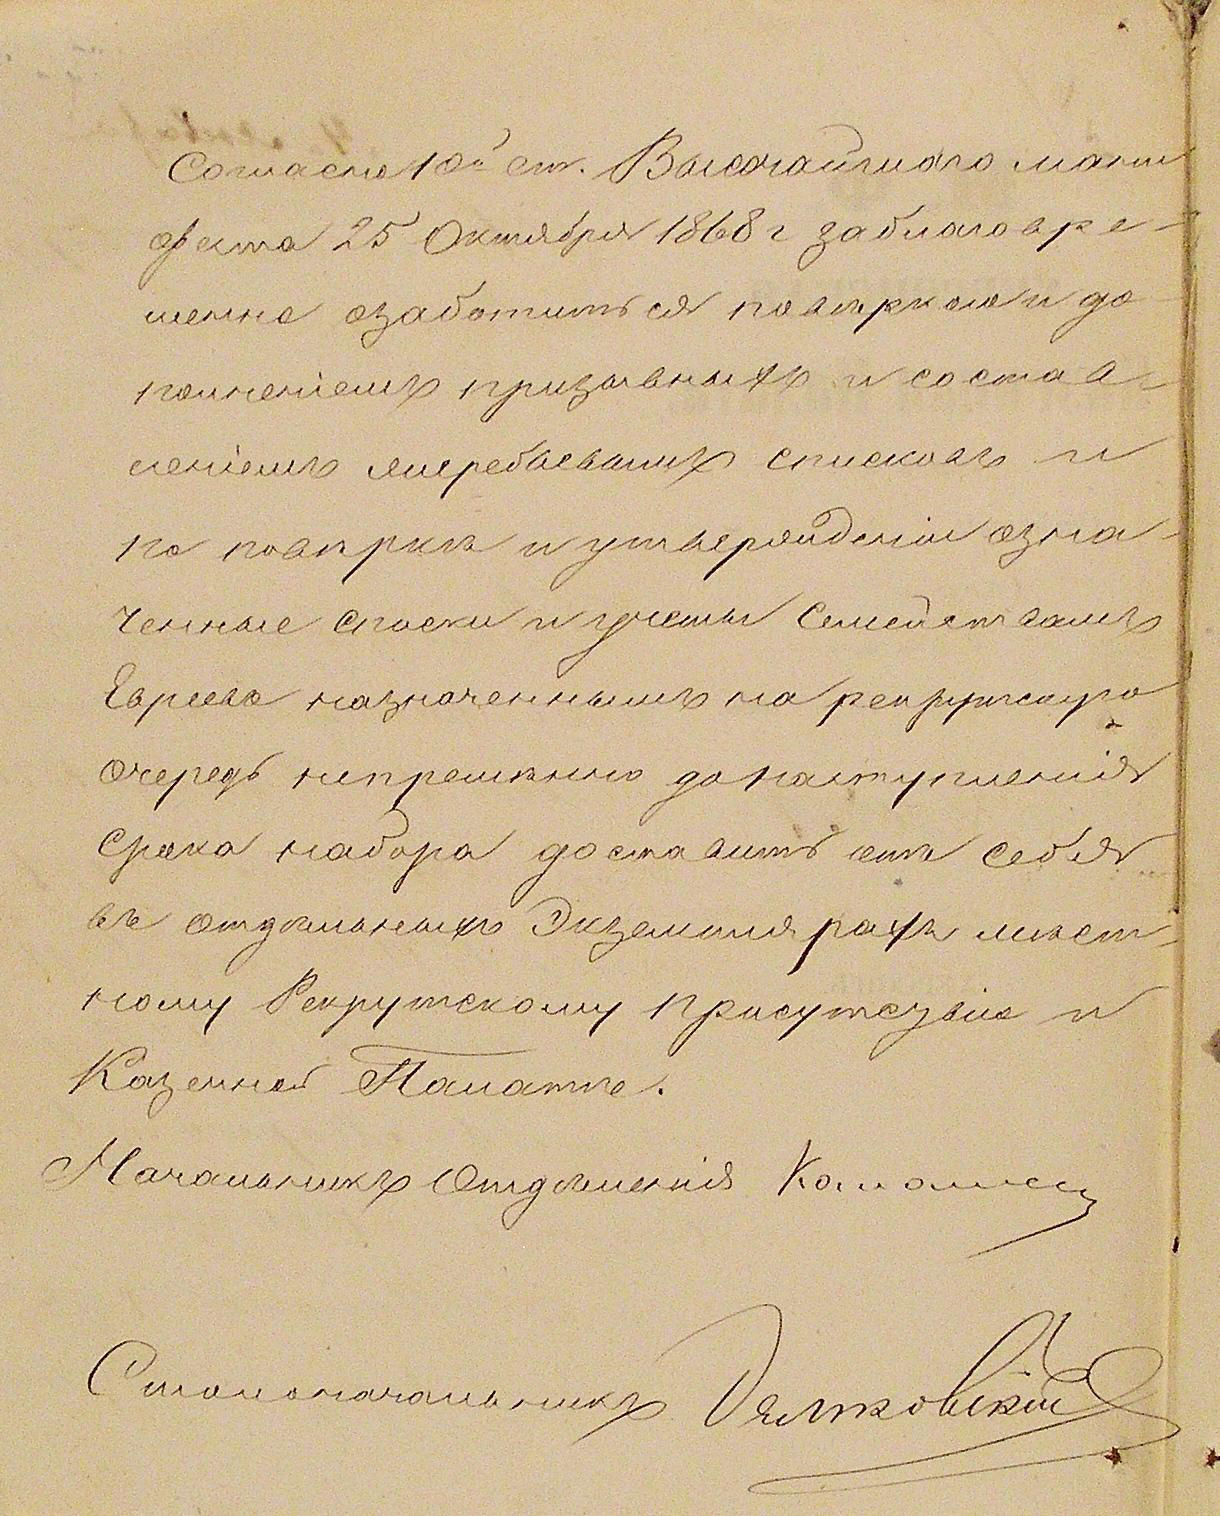 Согласно 10й ст. Высочайшаго мани
феста 25 Октября 1868 г заблаговре-
менно озаботиться повѣркою и до
полненіемъ призывныхъ и состав-
леніемъ жеребьевыхъ списковъ и
по повѣркѣ и утвержденіи озна-
ченные списки и учеты Семействамъ
Евреевъ назначеннымъ на рекрутскую
очередь непремѣнно до наступленія
срока набора доставить отъ себя
въ отдѣльныхъ Экземплярахъ мѣст-
ному Рекрутскому Присутствію и
Казенной Палатѣ.
Начальникъ Отдѣленія
Столоначальникъ